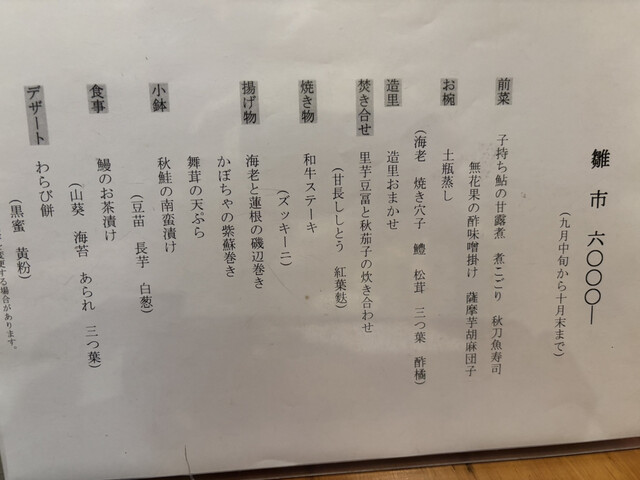 雛市 六〇〇〇―
（九月中旬から十月末まで）
前菜 子持ち鮎の甘露煮 煮こごり 秋刀魚寿司
無花果の酢味噌掛け 薩摩芋胡麻団子
お椀 土瓶蒸し
（海老 焼き穴子 鱧 松茸 三つ葉 酢橘）
造里 造里おまかせ
焚き合せ 里芋豆富と秋茄子の炊き合わせ
（甘長ししとう 紅葉麩）
焼き物 和牛ステーキ
（ズッキーニ）
揚げ物 海老と蓮根の磯辺巻き
かぼちゃの紫蘇巻き
舞茸の天ぷら
小鉢 秋鮭の南蛮漬け
（豆苗 長芋 白葱）
食事 鰻のお茶漬け
（山葵 海苔 あられ 三つ葉）
デザート わらび餅
（黒蜜 黄粉）
変更する場合があります。